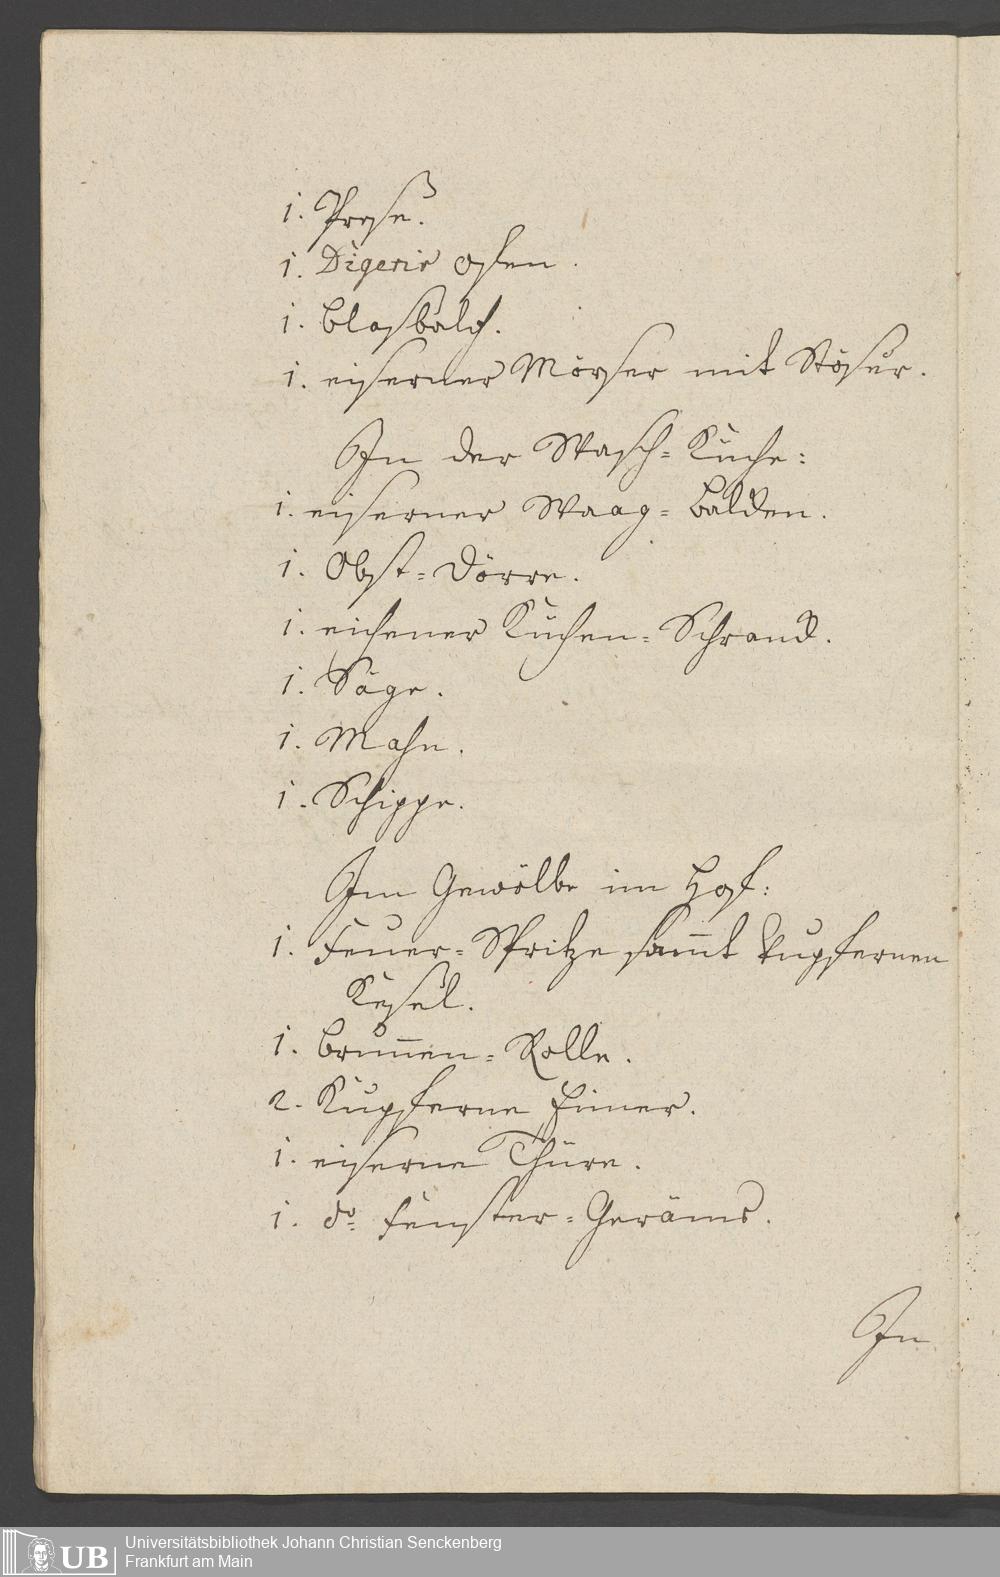 1. Preße.
1. Digerir Ofen.
1. Blasbalch.
1. eiserner Mörser mit Stößer.
In der Wasch=Küche:
1. eiserner Waag=Balcken.
1. Obst=Dörre.
1. eichener Küchen=Schranck.
1. Säge.
1. Mahn.
1. Schippe.
Im Gewölbe im Hof:
1. Feuer=Spritze sam̄t kupfernen
Keßel.
1. Brun̄en=Rolle.
2. Kupferne Eimer.
1. eiserne Thüre.
1. do. Fenster=Geräms.
In
UB Universitätsbibliothek Johann Christian Senckenberg
Frankfurt am Main